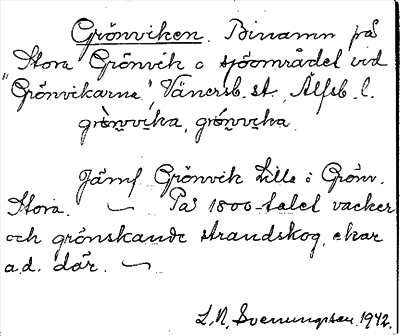 Grönviken. Binamn på
Stora Grönvik o sjöområdet vid
"Grönvikarna", Vänersb. st., Älfsb. l.
grö̀nvika, grö́nvika.
Jämf Grönvik Lilla o Grönv.
Stora. — På 1800-talet vacker
och grönskande strandskog, ekar
a.d. där. —
L. N. Svenungsen. 1942.